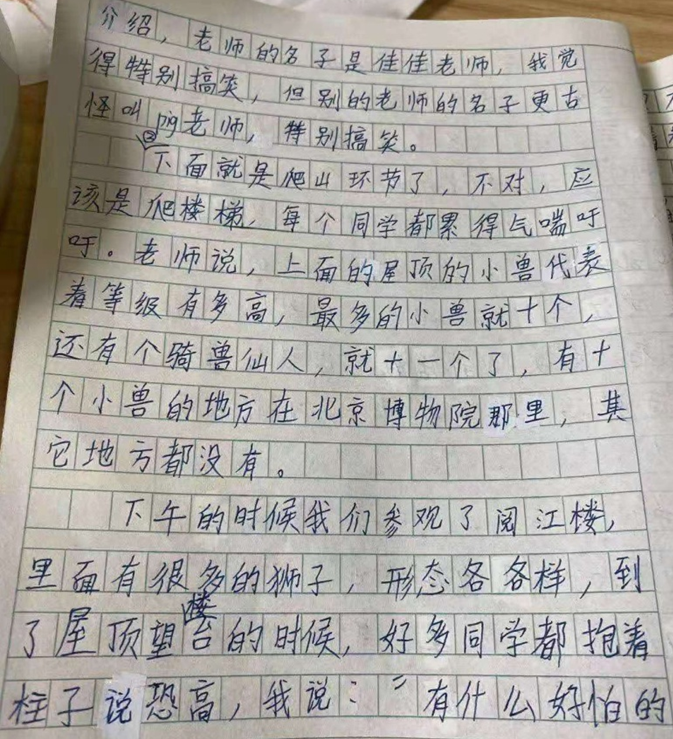 介绍，老师的名子是佳佳老师，我觉
得特别搞笑，但别的老师的名子更古
怪叫呐老师，特别搞笑。
下面就是爬山环节了，不对，应
该是爬楼梯，每个同学都累得气喘吁
吁。老师说，上面的屋顶的小兽代表
着等级有多高，最多的小兽就十个，
还有个骑兽仙人，就十一个了，有十
个小兽的地方在北京博物院那里，其
它地方都没有。
下午的时候我们参观了阅江楼，
里面有很多的狮子，形态各各样，到
了屋顶望楼台的时候，好多同学都抱着
柱子说恐高，我说：“有什么好怕的